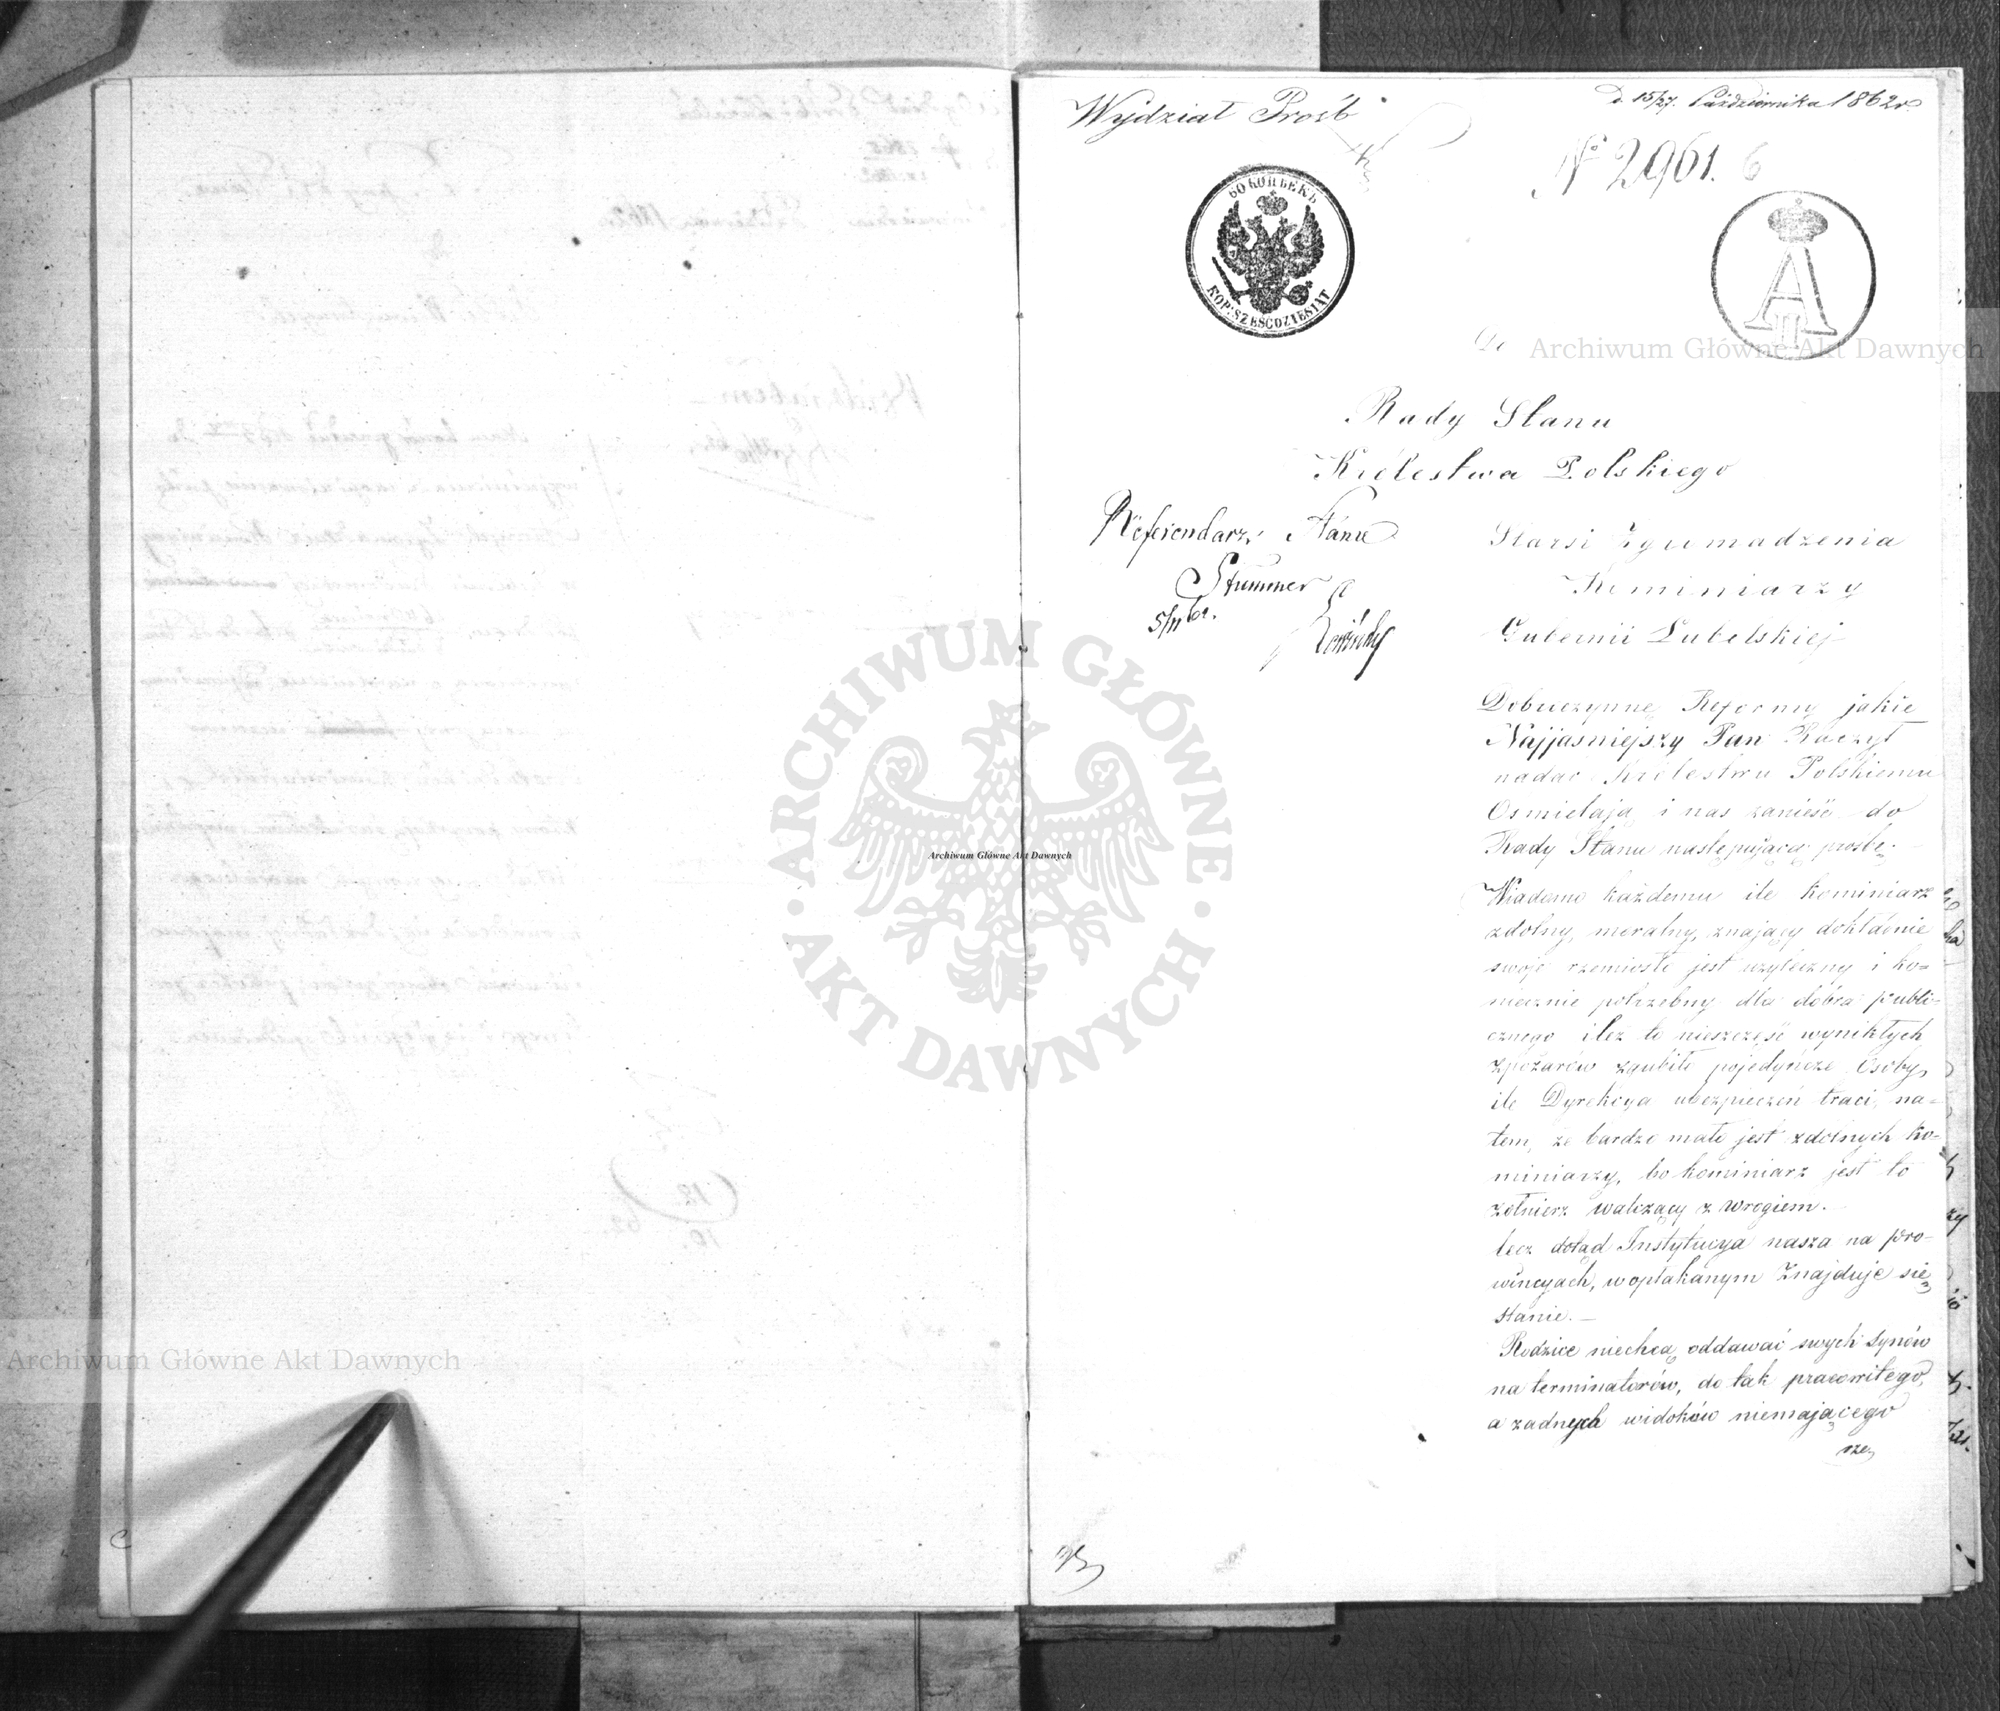 Wydział Próśb
d. 15/27. Października 1862 r.
Nº 2961. 6
60 КОПѢЕКЪ
KOP: SZEŚĆDZIESIĄT
A II
Do
Rady Stanu
Królestwa Polskiego
Referendarz Stanu
Stummer
5/11
Starsi Zgromadzenia
Kominiarzy
Gubernii Lubelskiej
Dobroczynne Reformy jakie
Najjaśniejszy Pan Raczył
nadać Królestwu Polskiemu
Ośmielają i nas zanieść do
Rady Stanu następującą prośbę.
Wiadomo każdemu ile kominiarz
zdolny, moralny, znający dokładnie
swoje rzemiosło jest użyteczny i ko=
niecznie potrzebny dla dobra publi=
cznego ileż to nieszczęść wynikłych
zpożarów zgubiło pojedyńcze Osoby,
ile Dyrekcya ubezpieczeń traci, na=
tem, że bardzo mało jest zdolnych ko=
miniarzy, bo kominiarz jest to
żołnierz walczący z wrogiem.
lecz dotąd Instytucya nasza na pro=
wincyach, w opłakanym Znajduje się
stanie.—
Rodzice niechcą oddawać swych Synów
na terminatorów, do tak pracowitego,
a żadnych widoków niemającego
rze
Archiwum Główne Akt Dawnych
Archiwum Główne Akt Dawnych
Archiwum Główne Akt Dawnych
ARCHIWUM GŁÓWNE
AKT DAWNYCH